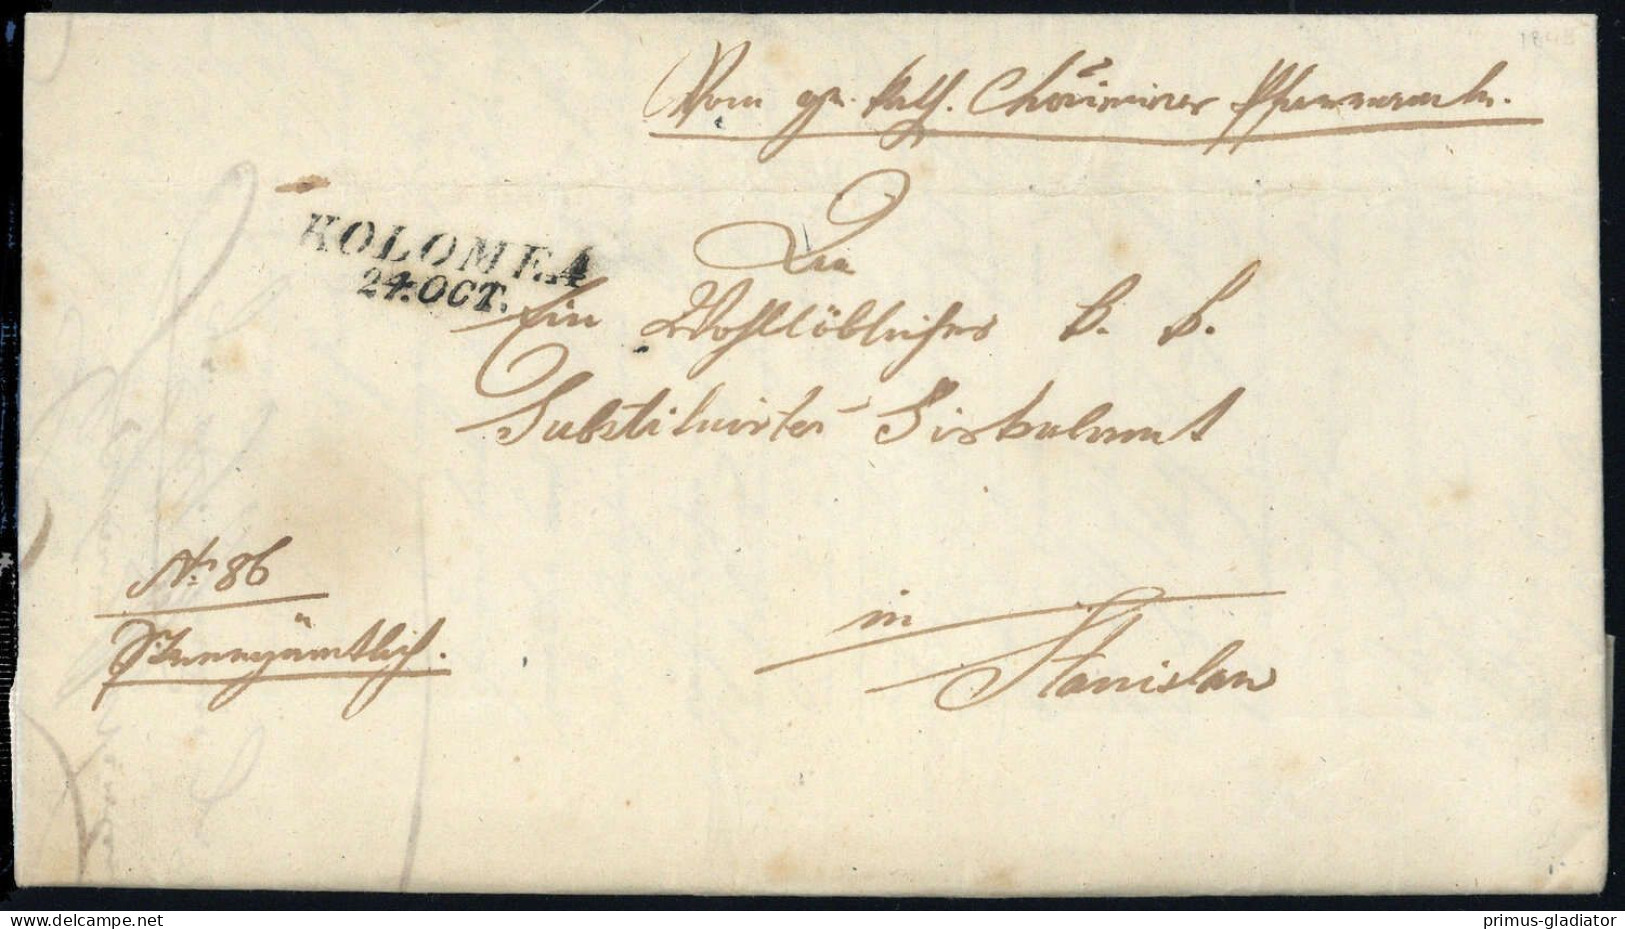 1843
Vom gr. kath. Chorimirer Pfarramte.
KOLOMEA
24. OCT.
An
Ein Wohllöbliches k. k.
Substituirtes Kreisamt
No: 86
Pfarrämtlich.
in
Stanislau
www.delcampe.net
primus-gladiator